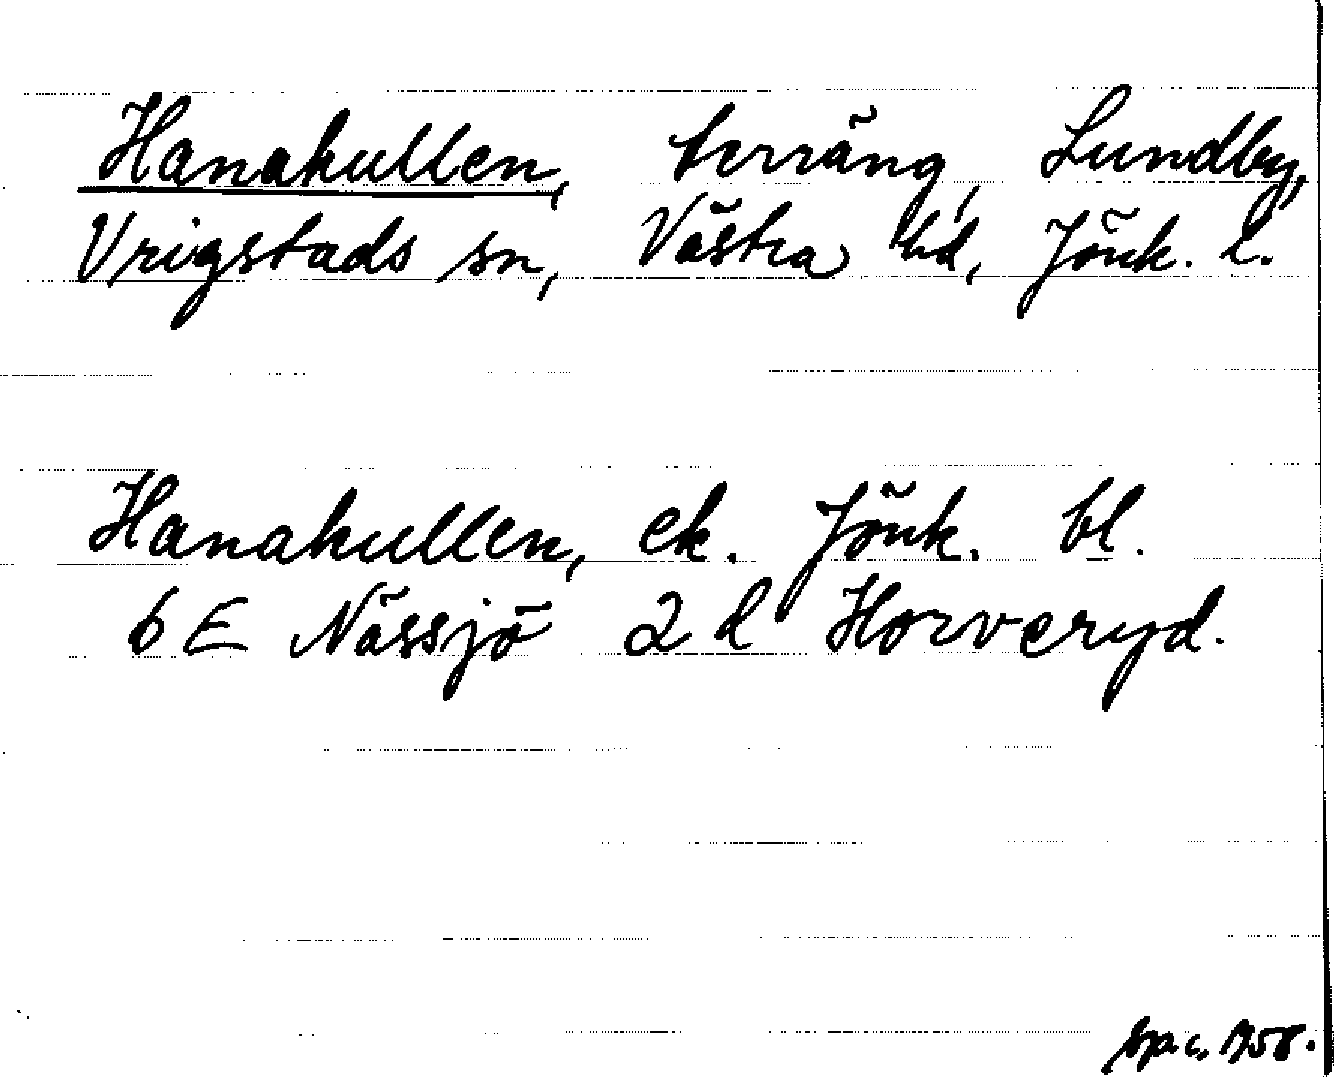 Hanakullen, terräng, Lundby,
Vrigstads sn, Västra hd, Jönk. l.
Hanakullen, ek. Jönk. bl.
6 E Nässjö 2 d Horveryd.
c. 1958.